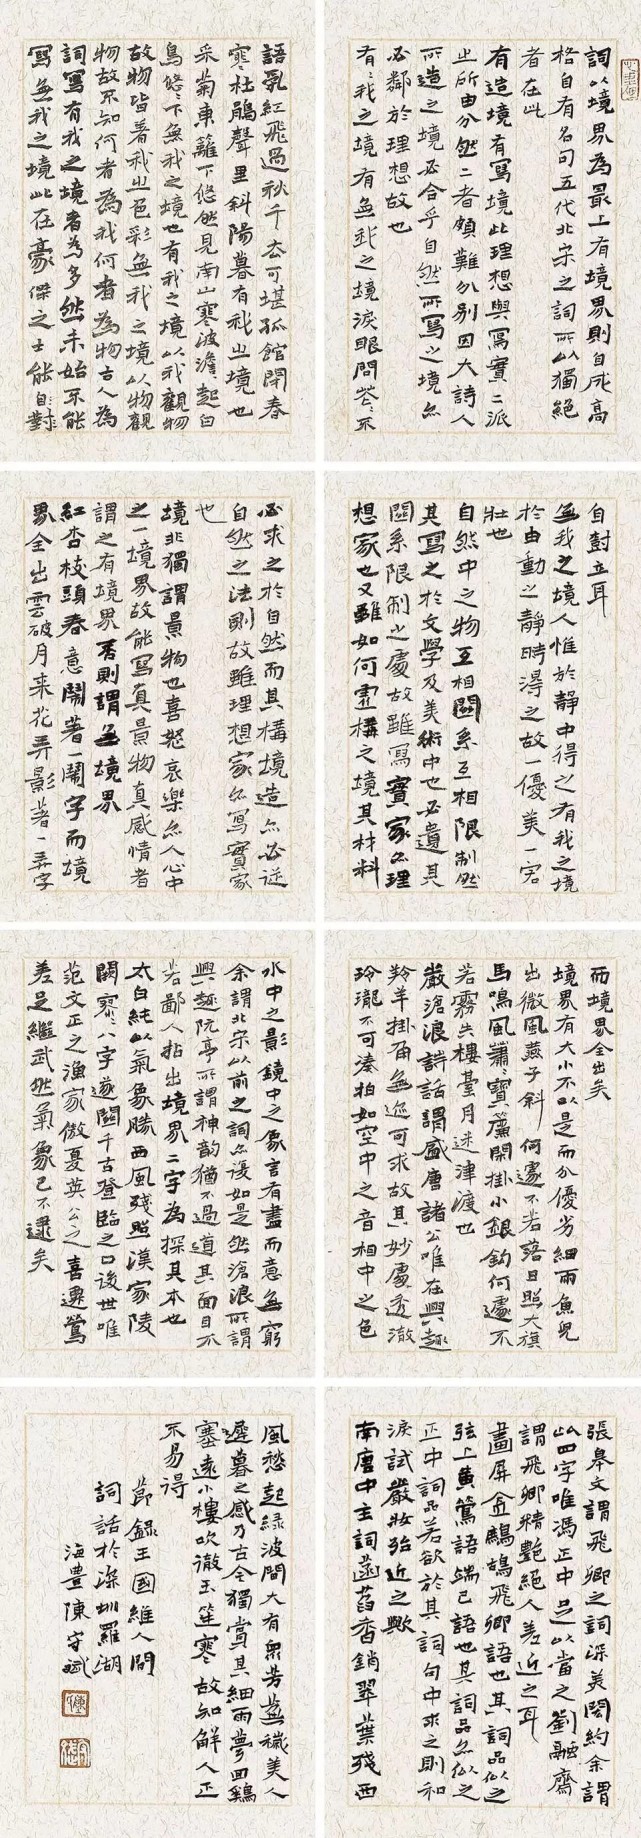 詞以境界為最上有境界則自成高
格自有名句五代北宋之詞所以獨絕
者在此
有造境有寫境此理想與寫實二派
之所由分然二者頗難分別因大詩人
所造之境必合乎自然所寫之境亦
必鄰於理想故也
有〻我之境有無我之境淚眼問花〻不
語亂紅飛過秋千去可堪孤館閉春
寒杜鵑聲里斜陽暮有我之境也
采菊東籬下悠然見南山寒波澹〻起白
鳥悠〻下無我之境也有我之境以我觀物
故物皆著我之色彩無我之境以物觀
物故不知何者為我何者為物古人為
詞寫有我之境者為多然未始不能
寫無我之境此在豪傑之士能自樹
自樹立耳
無我之境人惟於靜中得之有我之境
於由動之靜時得之故一優美一宏
壯也
自然中之物互相關系互相限制然
其寫之於文學及美術中也必遺其
關系限制之處故雖寫實家亦理
想家也又雖如何虛構之境其材料
必求之於自然而其構境造亦必從
自然之法則故雖理想家亦寫實家
也
境非獨謂景物也喜怒哀樂亦人心中
之一境界故能寫真景物真感情者
謂之有境界否則謂無境界
紅杏枝頭春意鬧著一鬧字而境
界全出雲破月来花弄影著一弄字
而境界全出矣
境界有大小不以是而分優劣細雨魚兒
出微風燕子斜何遽不若落日照大旗
馬鳴風蕭〻寶簾閑掛小銀鉤何遽不
若霧失樓臺月迷津渡也
嚴滄浪詩話謂盛唐諸公唯在興趣
羚羊掛角無迹可求故其妙處透澈
玲瓏不可湊拍如空中之音相中之色
水中之影鏡中之象言有盡而意無窮
余謂北宋以前之詞亦復如是然滄浪所謂
興趣阮亭所謂神韵猶不過道其面目不
若鄙人拈出境界二字為探其本也
太白純以氣象勝西風殘照漢家陵
闕寥〻八字遂關千古登臨之口後世唯
范文正之漁家傲夏英公之喜遷鶯
差足繼武然氣象已不逮矣
張皋文謂飛卿之詞深美閎約余謂
此四字唯馮正中足以當之劉融齋
謂飛卿精艷絕人差近之耳
畫屏金鷓鴣飛卿語也其詞品似之
弦上黄鶯語端己語也其詞品亦似之
正中詞品若欲於其詞句中求之則和
淚試嚴妝殆近之歟
南唐中主詞菡萏香銷翠葉殘西
風愁起緑波間大有衆芳蕪穢美人
遲暮之感乃古今獨賞其細雨夢回鷄
塞遠小樓吹徹玉笙寒故知解人正
不易得
節録王國維人間
詞話於深圳羅湖
海豊陳守斌